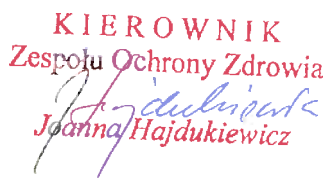 KIEROWNIK
Zespołu Ochrony Zdrowia
Joanna Hajdukiewicz